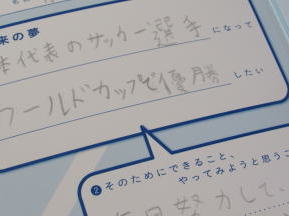 来の夢
本代表のサッカー選手になって
ワールドカップで優勝したい
❷そのためにできること、
やってみようと思うこ
毎日努力して、